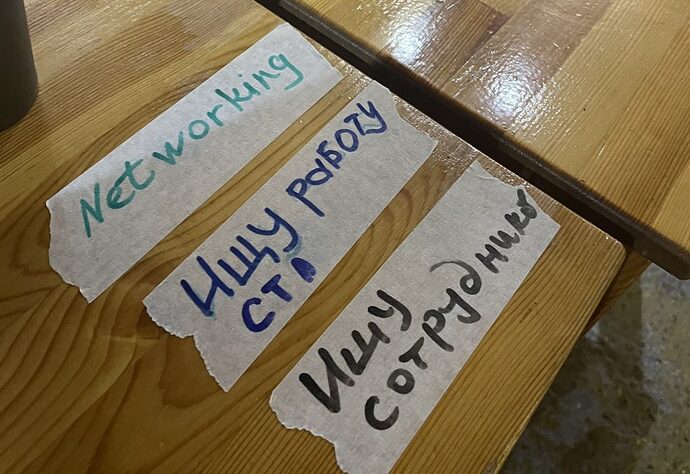 Networking
ищу работу
ст
ищу
сотрудников